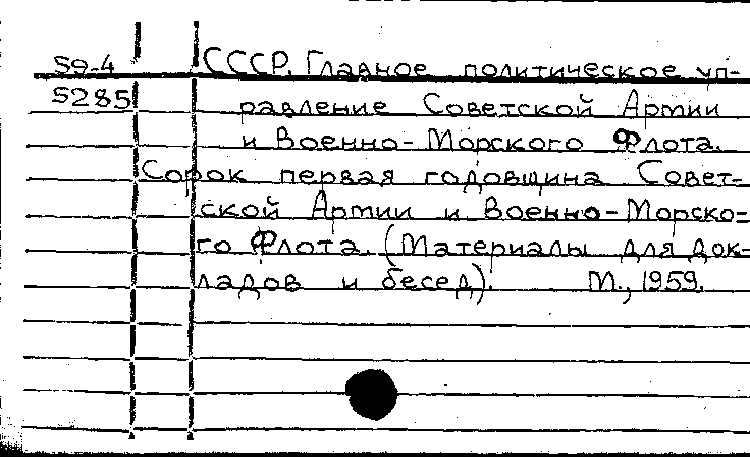 59-4 СССР. Главное политическое уп-
5285 равление Советской Армии
и Военно-Морского Флота.
Сорок первая годовщина Совет-
ской Армии и Военно-Морско-
го Флота. (Материалы для док-
ладов и бесед). М., 1959.